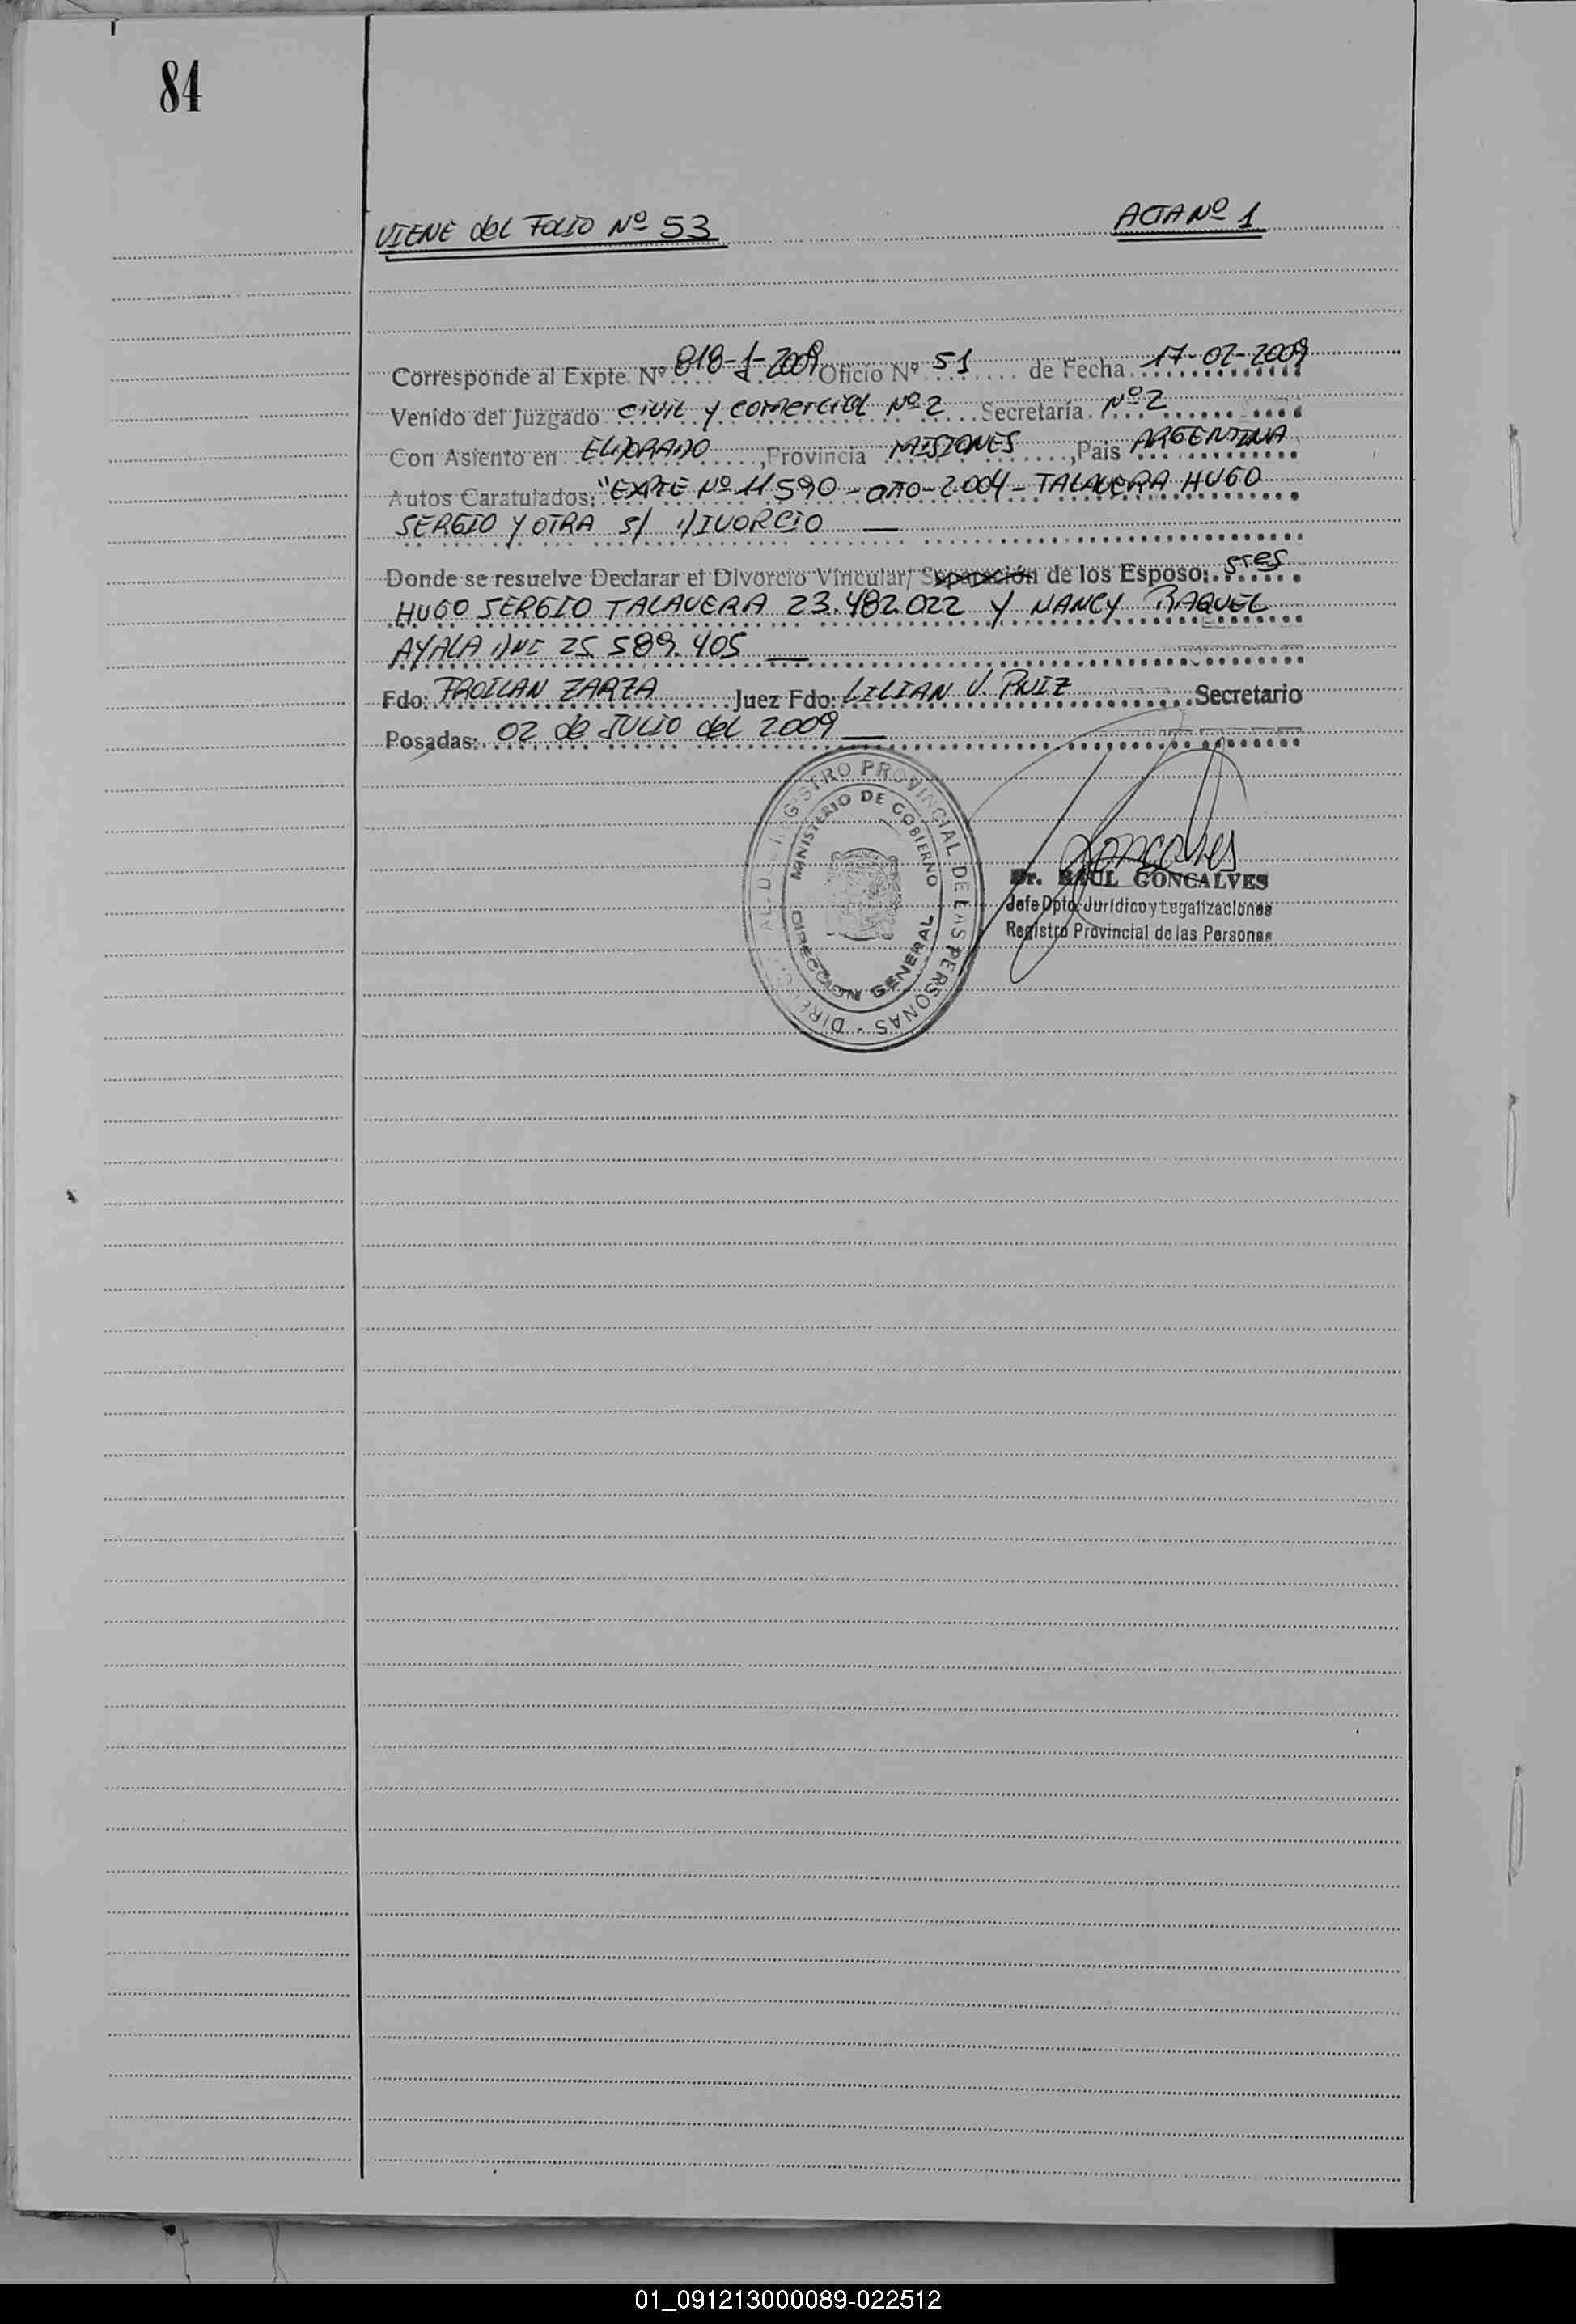 84
VIENE del FOLIO Nº 53
ACTA Nº 1
Corresponde al Expte. Nº 818-J-2009 Oficio Nº 51 de Fecha 17-02-2009
Venido del Juzgado civil y comercial Nº 2 Secretaría Nº 2
Con Asiento en ELDORADO, Provincia MISIONES, Pais ARGENTINA
Autos Caratulados: "EXPTE Nº 11590 - año - 2004 - TALAVERA HUGO
SERGIO Y OTRA s/ DIVORCIO —
Donde se resuelve Declarar el Divorcio Vincular/ Separación de los Esposo: sres
HUGO SERGIO TALAVERA 23.482.022 Y NANCY RAQUEL
AYALA DNI 25.589.405 —
Fdo: FROILAN ZARZA Juez Fdo: LILIAN V. RUIZ Secretario
Posadas: 02 de JULIO del 2009 —
REGISTRO PROVINCIAL DE LAS PERSONAS -
MINISTERIO DE GOBIERNO
DIRECCION GENERAL
Goncalves
Dr. RAUL GONCALVES
Jefe Dpto. Jurídico y Legalizaciones
Registro Provincial de las Personas
01_091213000089-022512